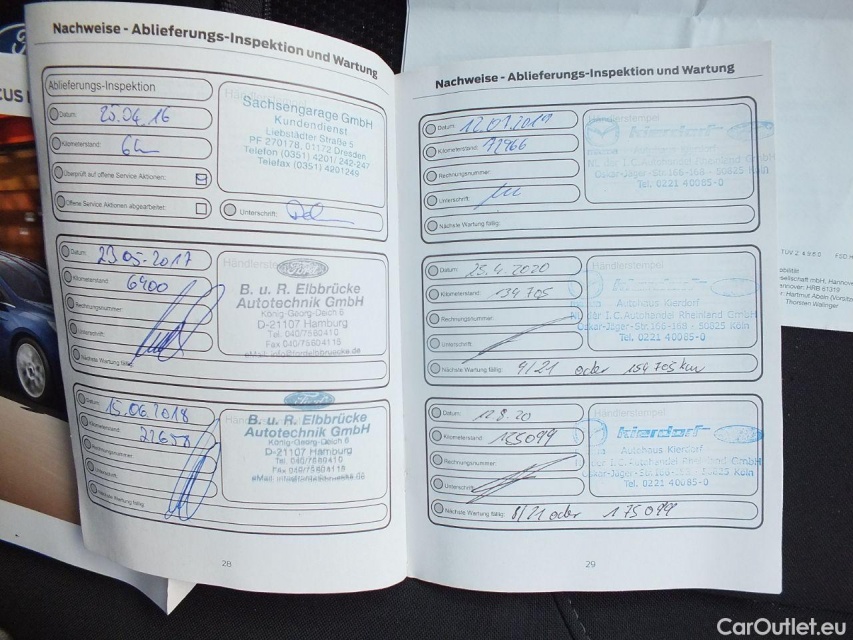 Nachweise - Ablieferungs-Inspektion und Wartung
Ablieferungs-Inspektion
Datum: 25.04.16
Kilometerstand: 6
Überprüft auf offene Service Aktionen:
Offene Service Aktionen abgearbeitet:
Sachsengarage GmbH
Kundendienst
Liebstädter Straße 5
PF 270178, 01172 Dresden
Telefon (0351) 4201/ 242-247
Telefax (0351) 4201249
Unterschrift:
Datum: 23.05.2017
Kilometerstand: 6400
Rechnungsnummer:
Unterschrift:
Nächste Wartung fällig:
Händlerstempel
Ford
B. u. R. Elbbrücke
Autotechnik GmbH
König-Georg-Deich 6
D-21107 Hamburg
Tel. 040/7560410
Fax 040/75604118
eMail: info@fordelbbruecke.de
Datum: 15.06.2018
Kilometerstand: 22658
Rechnungsnummer:
Unterschrift:
Nächste Wartung fällig:
B. u. R. Elbbrücke
Autotechnik GmbH
König-Georg-Deich 6
D-21107 Hamburg
Tel. 040/7560410
Fax 040/75604118
28
Nachweise - Ablieferungs-Inspektion und Wartung
Datum: 12.09.2019
Kilometerstand: 72966
Rechnungsnummer:
Unterschrift:
Nächste Wartung fällig:
Händlerstempel
Kierdorf
Autohaus Kierdorf
NL der I.C. Autohandel Rheinland GmbH
Oskar-Jäger-Str. 166-168 - 50825 Köln
Tel. 0221 40085-0
Datum: 25.4.2020
Kilometerstand: 134705
Rechnungsnummer:
Unterschrift:
Nächste Wartung fällig: 4/21 oder 154705km
Händlerstempel
Autohaus Kierdorf
NL der I.C. Autohandel Rheinland GmbH
Oskar-Jäger-Str. 166-168 - 50825 Köln
Tel. 0221 40085-0
Datum: 12.8.20
Kilometerstand: 155099
Rechnungsnummer:
Unterschrift:
Nächste Wartung fällig: 8/21 oder 175099
Händlerstempel
Kierdorf
Autohaus Kierdorf
NL der I.C. Autohandel Rheinland GmbH
Oskar-Jäger-Str. 166-168 - 50825 Köln
Tel. 0221 40085-0
29
HRB 61319
Hartmut Abeln
Thorsten Walinger
CarOutlet.eu